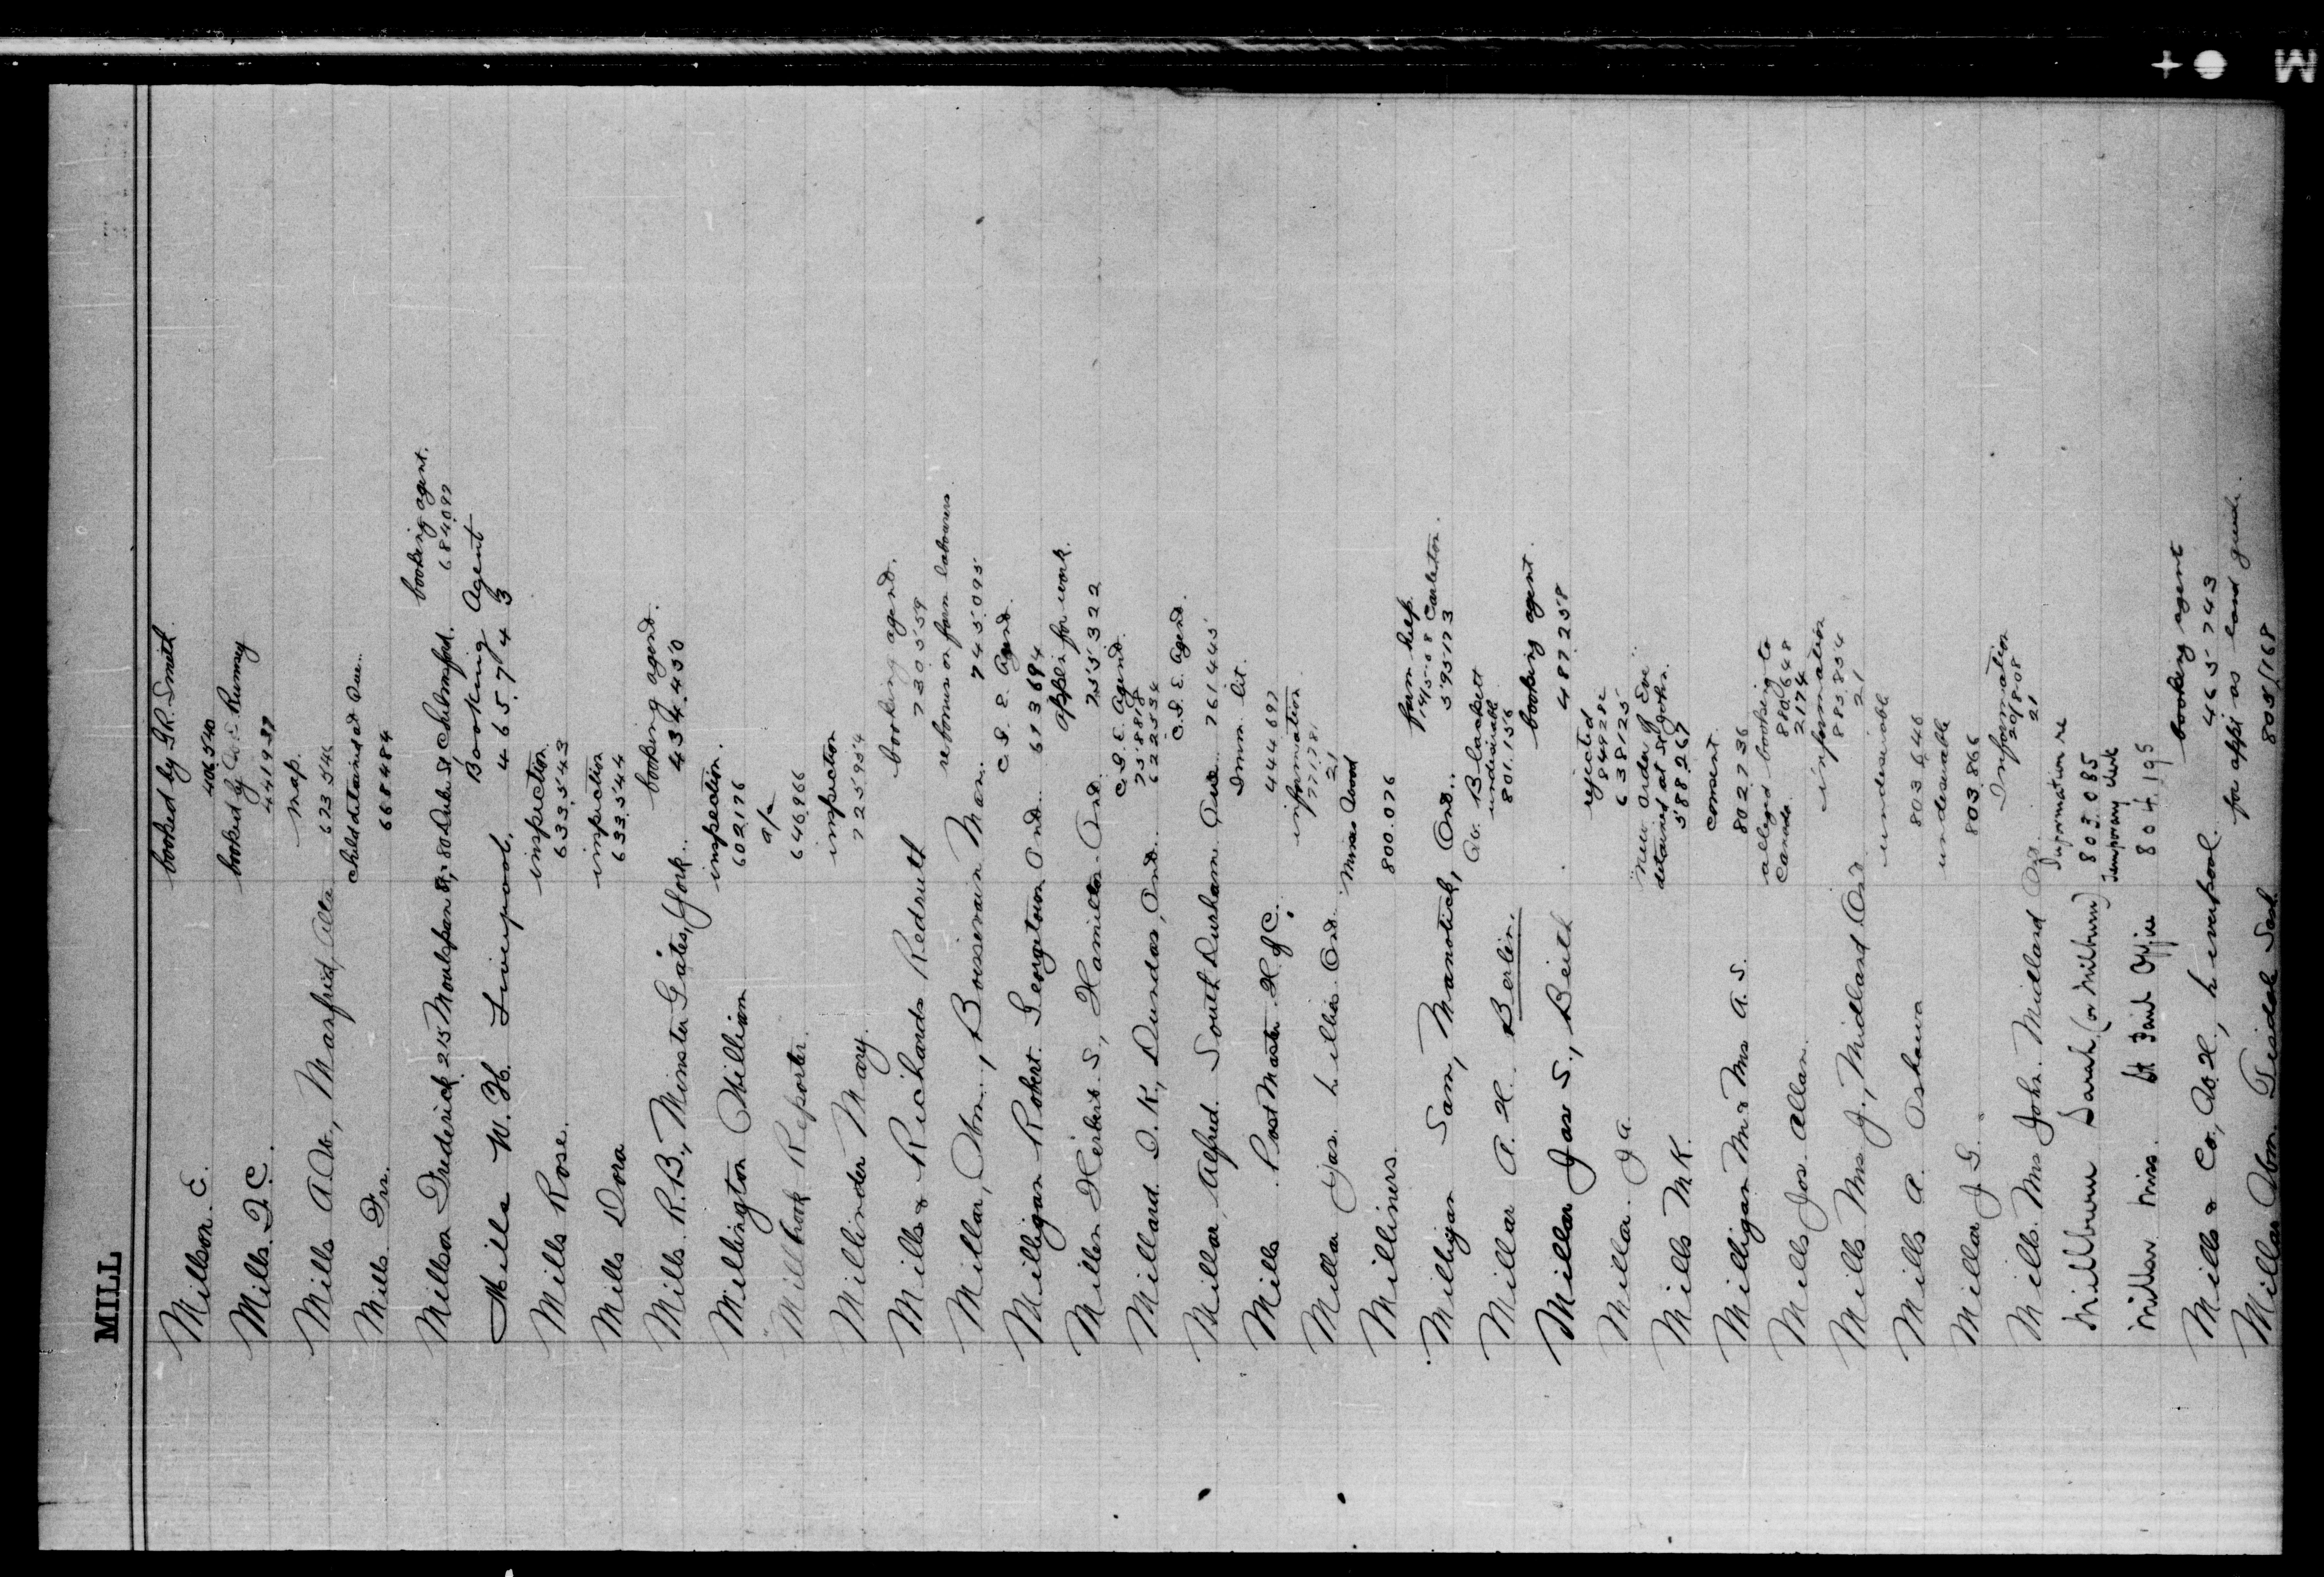 MILL
Millson. E. booked by G.R. Smith
406540
Mills. F. C. booked by W. E. Rumsey
441938
Mills A.W., Manfred, Alta map.
673544
Mills Drs. child detained at Que..
668484
Millson Frederick. 215 Moulsham St, 80 Duke St. Chelmsford. booking agent.
684.097
Mills W. H. Liverpool. Booking Agent
465743
Mills Rose. inspection
633543
Mills Dora inspection
633.544
Mills. R.B., Minster Gates, York.. booking agent.
434.450
Millington William inspection.
602176
Millbrook Reporter. a/c
646966
Millinder Mary. inspection
725954
Mills & Richards Redruth booking agent.
730559
Millar, Wm., Boissevain Man. re bonus on farm labourers
745.095
Milligan Robert. Georgetown Ont. C. G. E. Agent.
613694
Miller Herbert. S., Hamilton Ont. appli. for work.
755322
Millard. D. K., Dundas, Ont.. C. G. E. Agent.
758818
622534
Millar, Alfred. South Durham Que C. G. E. Agent.
761445
Mills Post Master H. of C. Imm. lit.
444697
Millar Jas. Lillies Ont. information
771781
21
Milliners. Mines Wood
800.076
Milligan Sam, Manotick, Ont.. farm help.
14/5-08 Carleton
595173
Millar A. H.. Berlin. W. Blackett
undesirable
801.156
Millar Jas S., Beith booking agent.
487258
Millar. J A. rejected
849282
638125
Mills M K. "New Order of Eve"
detained at St John.
588267
Milligan Mr & Mrs A. S. consent.
802736
Mills Jos. Allan. alleged booking to
Canada. 880648
2174
Mills Mrs J., Midland Ont information
885.854
21
Mills A. Oshawa undesirable
803646
Millar J. G. undesirable
803.866
Mills. Mrs John. Midland Ont. Information
20/8-08
21
Millburn Sarah (or Milburn) Information re
803.085
Miller Miss. St Paul Office Temporary Clerk
804.195
Mills & Co., W. H., Liverpool booking agent
465743
Millar Wm. Tisdale Sask. for appt as land guide.
805/168